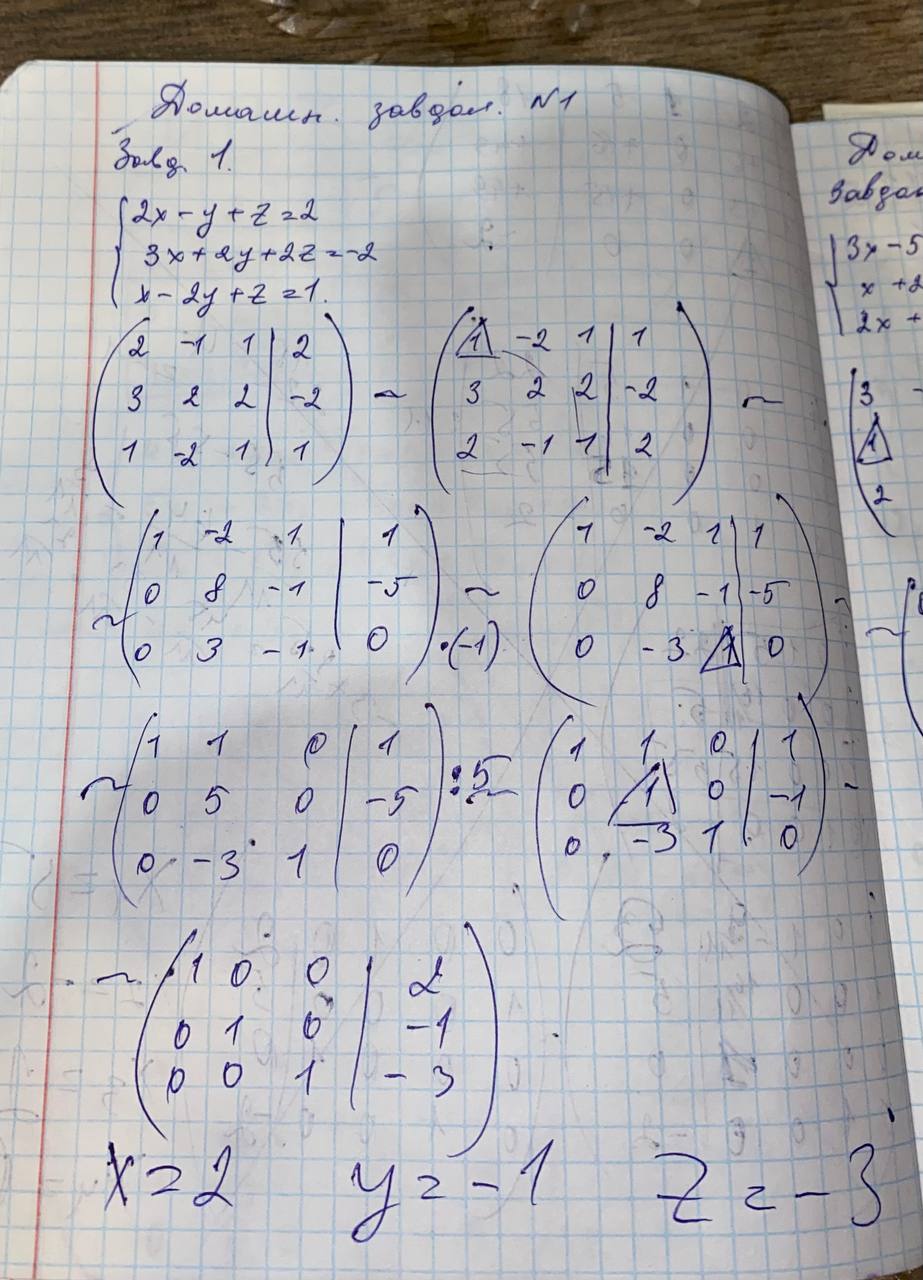 Домашн. завдан. №1
Завд. 1.
2x - y + z = 2
3x + 2y + 2z = -2
x - 2y + z = 1.
2 -1 1 | 2 ~ 1 -2 1 | 1 ~
3 2 2 | -2 3 2 2 | -2
1 -2 1 | 1 2 -1 1 | 2
~ 1 -2 1 | 1 ~ 1 -2 1 | 1 ~
0 8 -1 | -5 0 8 -1 | -5
0 3 -1 | 0 ·(-1) 0 -3 1 | 0
~ 1 1 0 | 1 ~ 1 1 0 | 1 ~
0 5 0 | -5 :5 0 1 0 | -1
0 -3 1 | 0 0 -3 1 | 0
~ 1 0 0 | 2
0 1 0 | -1
0 0 1 | -3
x = 2 y = -1 z = -3
Дом
Завдан
3x - 5
x + 2
2x +
3
1
2
~